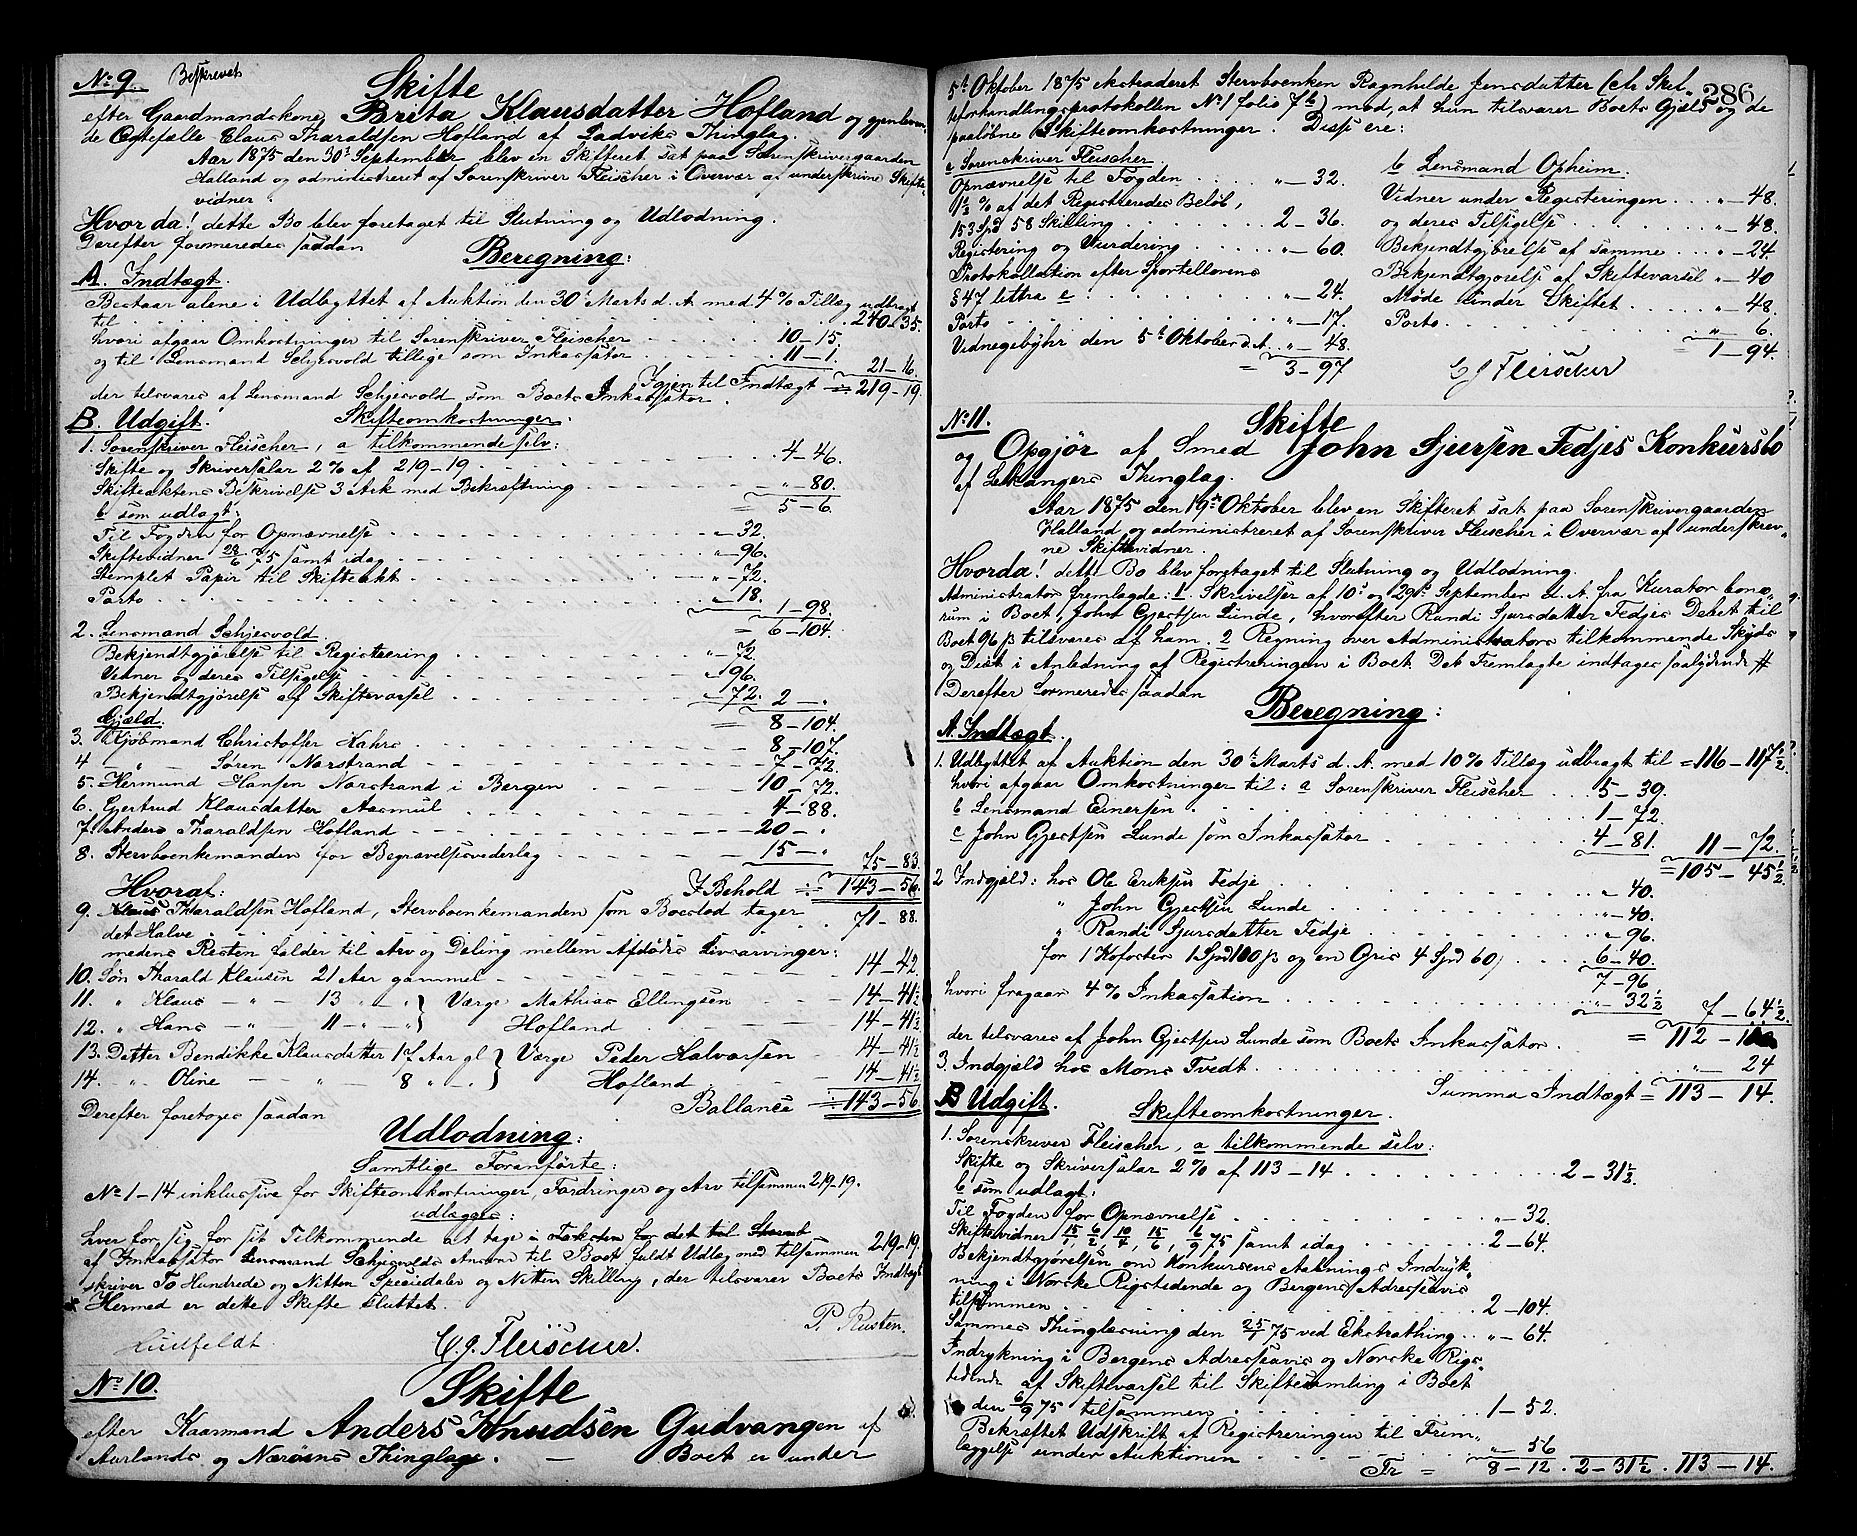 No 9. Beskrevet
Skifte
efter Gaardmandskone Brita Klausdatter Hofland og gjenleven-
de Ægtefælle Claus Tharaldsen Hofland af Ladviks Thinglag.
Aar 1875 den 30t September blev en Skifteret sat paa Sorenskrivergaarden
Halland og administreret af Sorenskriver Fleischer i Overvær af underskrevne Skifte-
vidner.
Hvorda! dette Bo blev foretaget til Slutning og Udlodning.
Derefter formeredes saadan
Beregning:
A. Indtægt.
Bestaar alene i Udbyttet af Auktion den 30t Marts d. A. med 4% Tillæg udbragt
til . . . 240 - 35.
hvori afgaar Omkostninger til Sorenskriver Fleischer . . . 10 - 15.
og til Lensmand Schjesvold tillige som Inkassator . . . 11 - 1. 21 - 16.
Igjen til Indtægt = 219 - 19.
der tilsvares af Lensmand Schjesvold som Boets Inkassator.
B. Udgift. Skifteomkostninger:
1. Sorenskriver Fleischer, a tilkommende selv:
Skifte og Skriversalær 2% af 219 - 19 . . . 4 - 46.
Skifteaktens Beskrivelse 3 Ark med Bekræftning . . . " - 80.
= 5 - 6.
b som udlagt:
Til Fogden for Opnævnelse . . . " - 32.
Skiftevidner 28/6 75 samt idag . . . " - 96.
Stemplet Papir til Skifteakt . . . " - 72.
Porto . . . " - 18. 1 - 98.
= 6 - 104.
2. Lensmand Schjesvold.
Bekjendtgjørelse til Registrering . . . " - 32.
Vidner og deres Tilsigelse . . . " 96.
Bekjendtgjørelse af Skiftevarsel . . . " - 72. 2 - ".
= 8 - 104.
Gjæld.
3. Kjøbmand Christoffer Kahrs . . . 8 - 107.
4 - " - Søren Narstrand . . . 7 - 72.
5. Hermund Hansen Norstrand i Bergen . . . 10 - 72.
6. Gjertrud Klausdatter Aasmul . . . 4 - 88.
7. Anders Tharaldsen Hofland . . . 20 - ".
8. Stervboenkemanden for Begravelsesvederlag . . . 15 - " 75 - 83.
I Behold = 143 - 56.
Hvoraf:
9. Klaus Tharaldsen Hofland, Stervboenkemanden som Boeslod tager
det Halve . . . 71 - 88.
medens Resten falder til Arv og Deling mellem Afdødes Livsarvinger:
10. Søn Tharald Klausen 21 Aar gammel . . . 14 - 42.
11. " Klaus - " - 13 " - " } Værge Mathias Ellingsen . . . 14 - 41½
12. " Hans - " - 11 - " - " } Hofland . . . 14 - 41½
13. Datter Bendikke Klausdatter 17 Aar gl } Værge Peder Halvorsen . . . 14 - 41½
14. - " - Oline - " - 8 " - . } Hofland . . . 14 - 41½
Ballance = 143 - 56.
Derefter foretoges saadan
Udlodning:
Samtlige Foranførte:
No 1 - 14 inklusive for Skifteomkostninger, Fordringer og Arv tilsammen 219 - 19.
udlægges:
hver for sig for sit Tilkommende at tage
af Inkassator Lensmand Schjesvolds Ansvar til Boet fuldt Udlæg med tilsammen 219 - 19.
skriver To Hundrede og Nitten Speciedaler og Nitten Skilling, der tilsvarer Boets Indtægt.
Hermed er dette Skifte sluttet.
Lindfeldt C. J. Fleischer. P. Rusten.
No 10.
Skifte
efter Kaarmand Anders Knudsen Gudvangen af
Aurlands og Nærøens Thinglag. - Boet er under
286
5t Oktober 1875 extraderet Stervboenken Ragnhilde Jensdatter (cfr Skif-
teforhandlingsprotokollen No 1 folio 76) mod, at hun tilsvarer Boets Gjæld og de
paaløbne Skifteomkostninger. Disse ere:
a Sorenskriver Fleischer.
Opnævnelse til Fogden . . . " - 32.
1½ % af det Registreredes Beløb,
153 Spd 58 Skilling . . . 2 - 36.
Registering og Vurdering . . . " - 60.
Protokollation efter Sportellovens
§ 47 littra c . . . " - 24.
Porto . . . " - 17.
Vidnegebyhr den 5t Oktober d. A. . " - 48.
= 3 - 97
b Lensmand Opheim.
Vidner under Registeringen . . . " - 48.
og deres Tilsigelse . . . " - 48.
Bekjendtgjørelse af samme . . . " - 24.
Bekjendtgjørelse af Skiftevarsel " - 40
Møde under Skiftet . . . " - 48.
Porto . . . " - 6.
= 1 - 94.
C J Fleischer
No 11.
Skifte
og Opgjør af Smed John Sjursen Fedjes Konkursbo
af Lekangers Thinglag.
Aar 1875 den 19de Oktober blev en Skifteret sat paa Sorenskrivergaarden
Halland og administreret af Sorenskriver Fleischer i Overvær af underskrev-
ne Skiftevidner.
Hvorda! dette Bo blev foretaget til Slutning og Udlodning.
Administrator fremlagde: 1. Skrivelser af 10t og 29de September d. A. fra Kurator bono-
rum i Boet, John Gjertsen Lunde, hvorefter Randi Sjursdatter Fedjes Debet til
Boet 96 ß tilsvares af ham. 2 Regning over Administrators tilkommende Skyds
og Diæt i Anledning af Registreringen i Boet. Det Fremlagte indtages saalydende #
Derefter formeredes saadan
Beregning:
A. Indtægt.
1. Udbyttet af Auktion den 30t Marts d. A. med 10% Tillæg udbragt til = 116 - 117½
hvori afgaar Omkostninger til: a Sorenskriver Fleischer . . . 5 - 39.
b Lensmand Einersen . . . 1 - 72.
c John Gjertsen Lunde som Inkassator . . . 4 - 81. 11 - 72.
= 105 - 45½
2 Indgjæld: hos Ole Eriksen Fedje . . . " - 40.
" John Gjertsen Lunde . . . " - 40.
" Randi Sjursdatter Fedje . . . " - 96.
for 1 Kofoster 1 Spd 100 ß og en Gris 4 Spd 60, . . . 6 - 40.
7 - 96
hvori fragaar 4% Inkassation . . . " - 32½ 7 - 64½.
der tilsvares af John Gjertsen Lunde som Boets Inkassator . = 112 - 110
3. Indgjæld hos Mons Tvedt . . . " - 24
Summa Indtægt = 113 - 14.
B Udgift. Skifteomkostninger.
1. Sorenskriver Fleischer, a tilkommende selv:
Skifte og Skriversalær 2% af 113 - 14 . . . 2 - 31½.
b som udlagt:
Til Fogden for Opnævnelse . . . " - 32.
Skiftevidner 15/1, 6/2, 10/4, 15/6, 6/9 75 samt idag . . . 2 - 64.
Bekjendtgjørelsen om Konkursens Aabnings Indryk-
ning i Norske Rigstidende og Bergens Adresseavis
tilsammen . . . 2 - 104.
Sammes Thinglæsning den 25/1 75 ved Ekstrathing . . " - 64.
Indrykning i Bergens Adresseavis og Norske Rigs-
tidende af Skiftevarsel til Skiftesamling i Boet
den 6/9 75 tilsammen . . . 1 - 52.
Bekræftet Udskrift af Registreringen til Frem-
læggelse under Auktionen . . . " - 56
Tr = 8 - 12 . 2 - 31½ . 113 - 14.